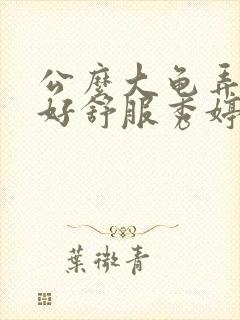 公麽大龟弄
好舒服秀婷
葉微青